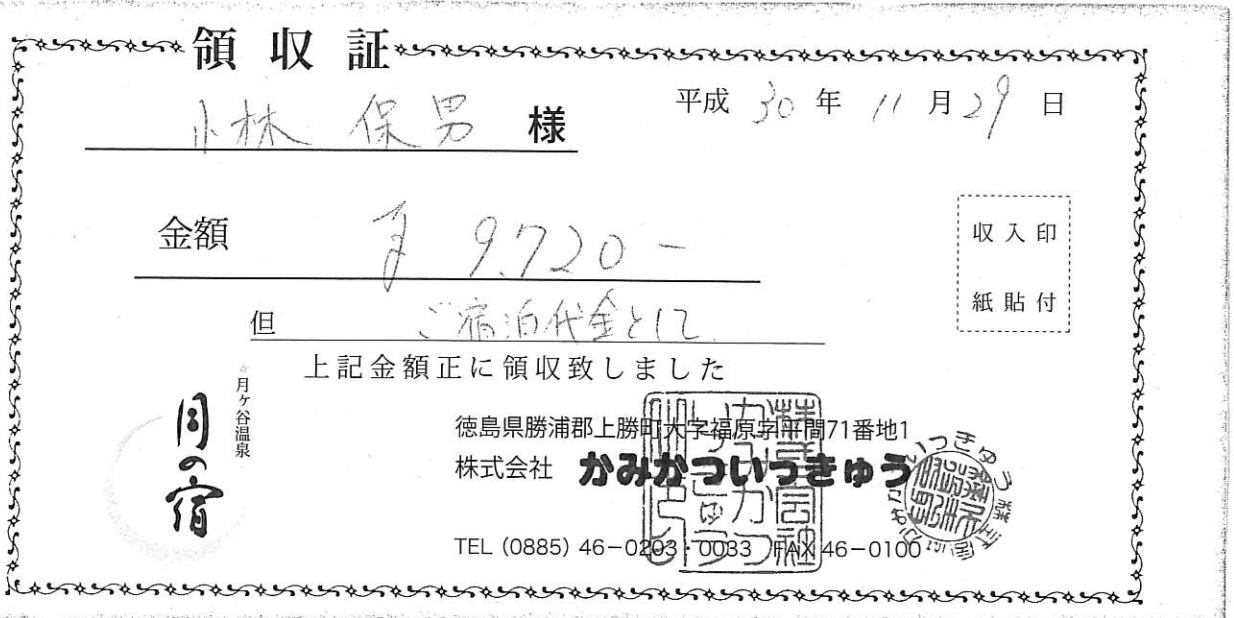 領収証
平成 30 年 11 月 29 日
小林 保男 様
金額 ¥ 9,720-
但 ご宿泊代金として
上記金額正に領収致しました
収入印
紙貼付
月ヶ谷温泉
月の宿
徳島県勝浦郡上勝町大字福原字平間71番地1
株式会社 かみかついっきゅう
TEL (0885) 46-0203・0033 FAX 46-0100